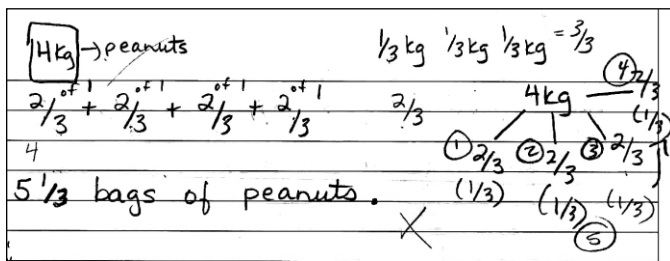 4kg → peanuts
1/3 kg 1/3 kg 1/3 kg = 3/3
2/3 of 1 + 2/3 of 1 + 2/3 of 1 + 2/3 of 1
2/3
4kg
④ 2/3
(1/3)
① 2/3 ② 2/3 ③ 2/3
(1/3) (1/3) (1/3)
1
⑤
4
5 1/3 bags of peanuts.
X